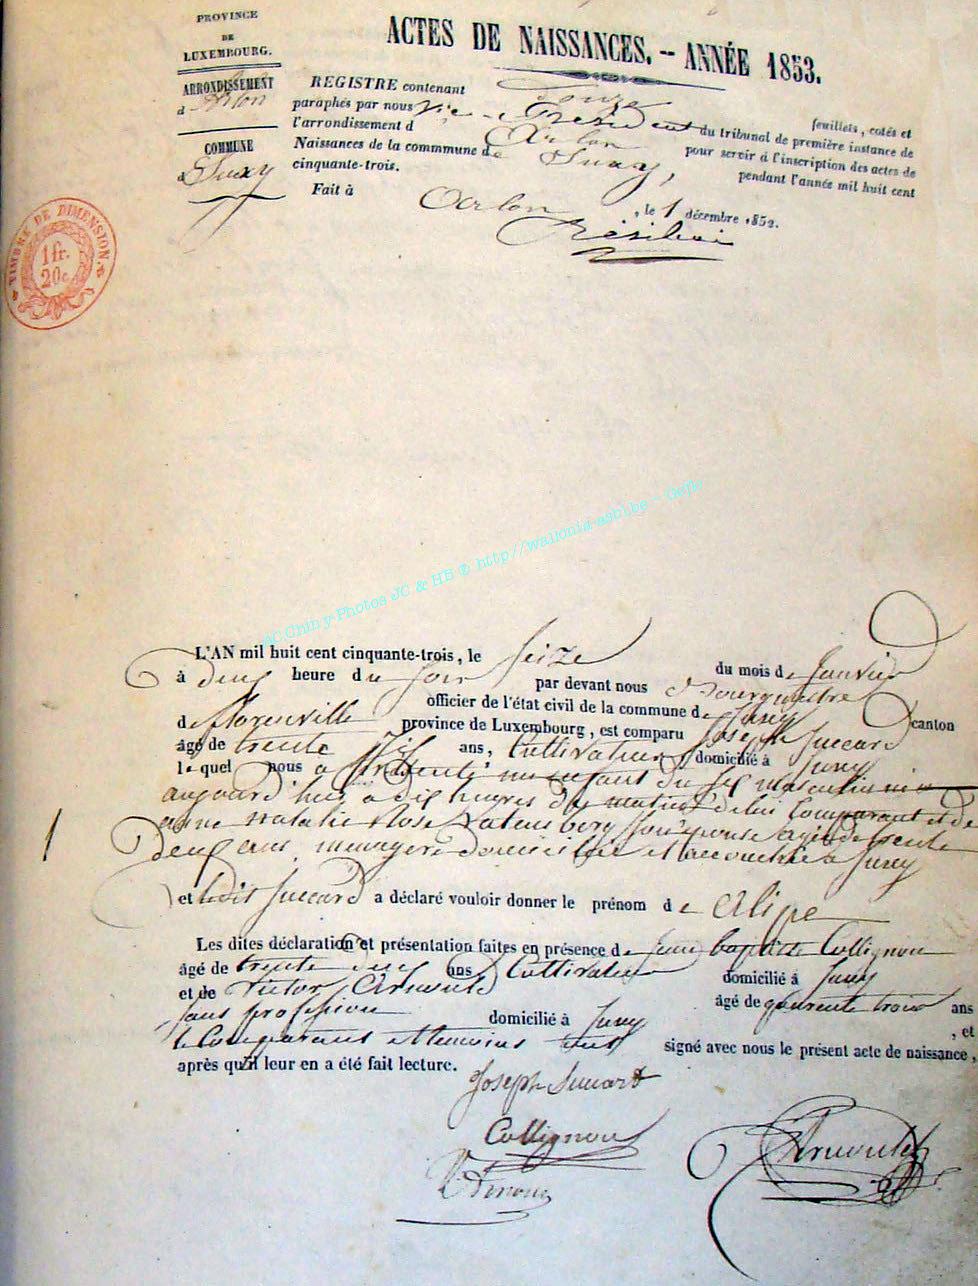 PROVINCE
DE
LUXEMBOURG.
ARRONDISSEMENT
d'Arlon
COMMUNE
de Suxy
ACTES DE NAISSANCES. — ANNÉE 1853.
REGISTRE contenant Douze feuillets, cotés et
paraphés par nous vice-Président du tribunal de première instance de
l'arrondissement d'Arlon pour servir à l'inscription des actes de
Naissances de la commmune de Suxy, pendant l'année mil huit cent
cinquante-trois.
Fait à Arlon, le 1 décembre 1852.
TIMBRE DE DIMENSION.
1 fr.
20 c.
AC Chiny Photos JC & HB © http://wallonia-asbl.be - Gefic
L'AN mil huit cent cinquante-trois, le Seize du mois de Janvier
à deux heure du soir par devant nous
officier de l'état civil de la commune de Suxy canton
de florenville province de Luxembourg, est comparu Joseph Succard
âgé de trente six ans, Cultivateur domicilié à Suxy
lequel nous a présenté un enfant du sex masculin né
aujourd'huy à dix heures du matin de lui Comparant et de
anne natalie Rose son épouse agée de trente
deux ans, menagere domiciliée et accouchée à Suxy
1
et ledit Succard a déclaré vouloir donner le prénom de Alipe
Les dites déclaration et présentation faites en présence de Jean baptiste Collignon
âgé de trente deux ans Cultivateur domicilié à Suxy
et de Victor Arnould âgé de quarente trois ans
sans profession domicilié à Suxy, et
le Comparant et temoins ont signé avec nous le présent acte de naissance,
après qu'il leur en a été fait lecture.
Joseph Succard
Collignon
V Arnould
Arnould